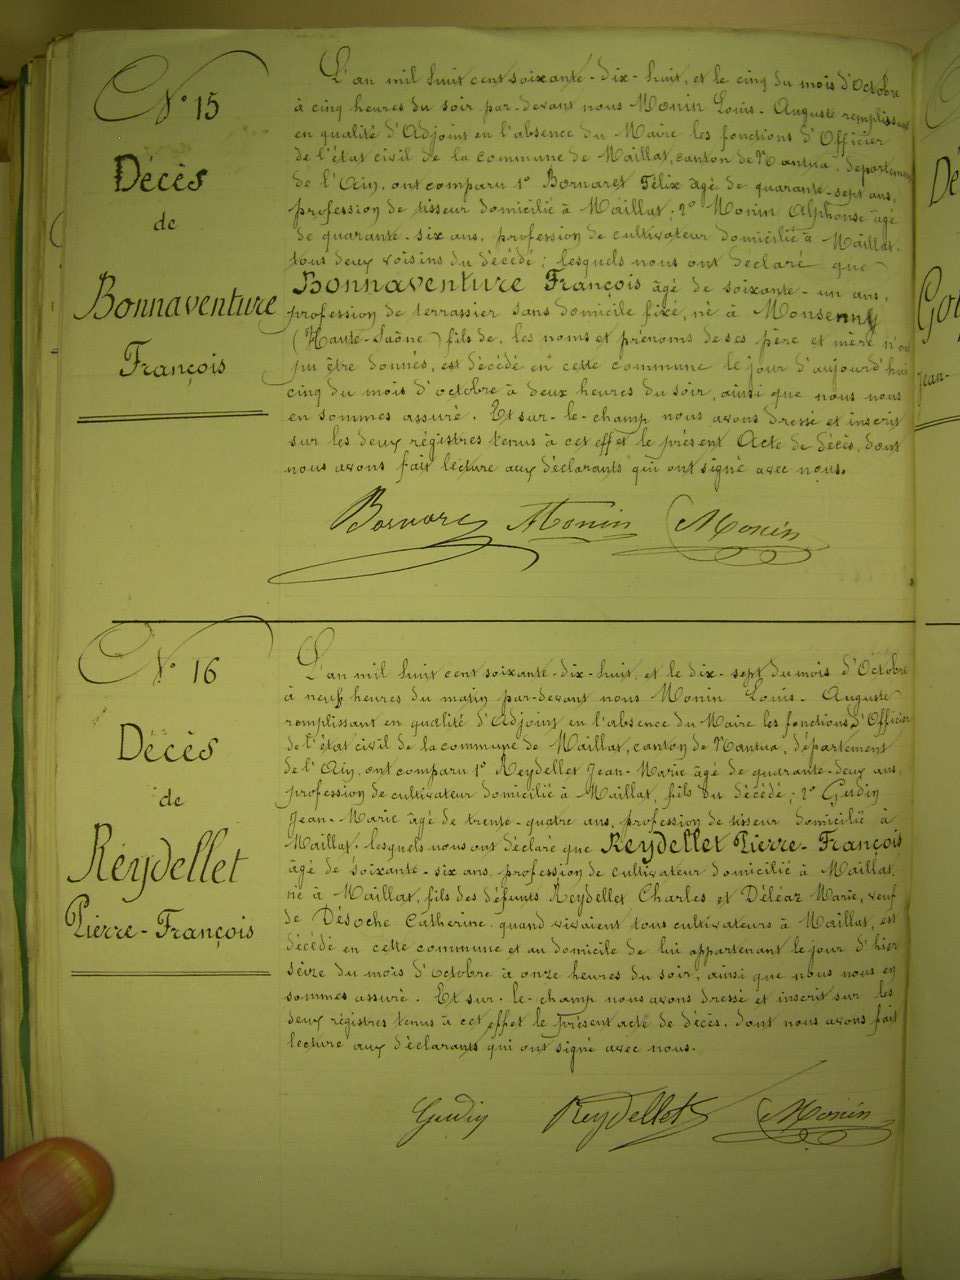 N° 15
Décès
de
Bonnaventure
François
L'an mil huit cent soixante-dix-huit, et le cinq du mois d'Octobre
à cinq heures du soir par-devant nous Monin Louis-Auguste remplissant
en qualité d'Adjoint en l'absence du Maire les fonctions d'Officier
de l'état civil de la commune de Maillat, canton de Nantua, département
de l'Ain, ont comparu 1° Bornaret Félix âgé de quarante-sept ans,
profession de tisseur domicilié à Maillat; 2° Monin Alphonse âgé
de quarante-six ans, profession de cultivateur domicilié à Maillat.
tous deux voisins du décédé; lesquels nous ont déclaré que
Bonnaventure François âgé de soixante-un ans,
profession de terrassier sans domicile fixé, né à
(Haute-Saône) fils de, les noms et prénoms de ses père et mère n'ont
pu être donnés, est décédé en cette commune le jour d'aujourd'hui
cinq du mois d'octobre à deux heures du soir, ainsi que nous nous
en sommes assuré. Et sur-le-champ nous avons dressé et inscrit
sur les deux régistres tenus à cet effet le présent Acte de décès, dont
nous avons fait lecture aux déclarants qui ont signé avec nous.
AMonin Monin
N° 16
Décès
de
Réydellet
Pierre-François
L'an mil huit cent soixante-dix-huit, et le dix-sept du mois d'Octobre
à neuf heures du matin par-devant nous Monin Louis-Auguste
remplissant en qualité d'Adjoint en l'absence du Maire les fonctions d'Officier
de l'état civil de la commune de Maillat, canton de Nantua, département
de l'Ain, ont comparu 1° Reydellet Jean-Marie âgé de quarante-deux ans,
profession de cultivateur domicilié à Maillat, fils du décédé; 2° Gudin
Jean-Marie âgé de trente-quatre ans, profession de tisseur domicilié à
Maillat, lesquels nous ont déclaré que Réydellet Pierre-François
âgé de soixante-six ans, profession de cultivateur domicilié à Maillat,
né à Maillat, fils des défunts Reydellet Charles et Déléaz Marie, veuf
de Désoche Catherine, quand vivaient tous cultivateurs à Maillat, est
décédé en cette commune et au domicile de lui appartenant le jour d'hier
seize du mois d'octobre à onze heures du soir, ainsi que nous nous en
sommes assuré. Et sur-le-champ nous avons dressé et inscrit sur les
deux régistres tenus à cet effet le présent acte de décès, dont nous avons fait
lecture aux déclarants qui ont signé avec nous.
Gudin Reydellet Monin